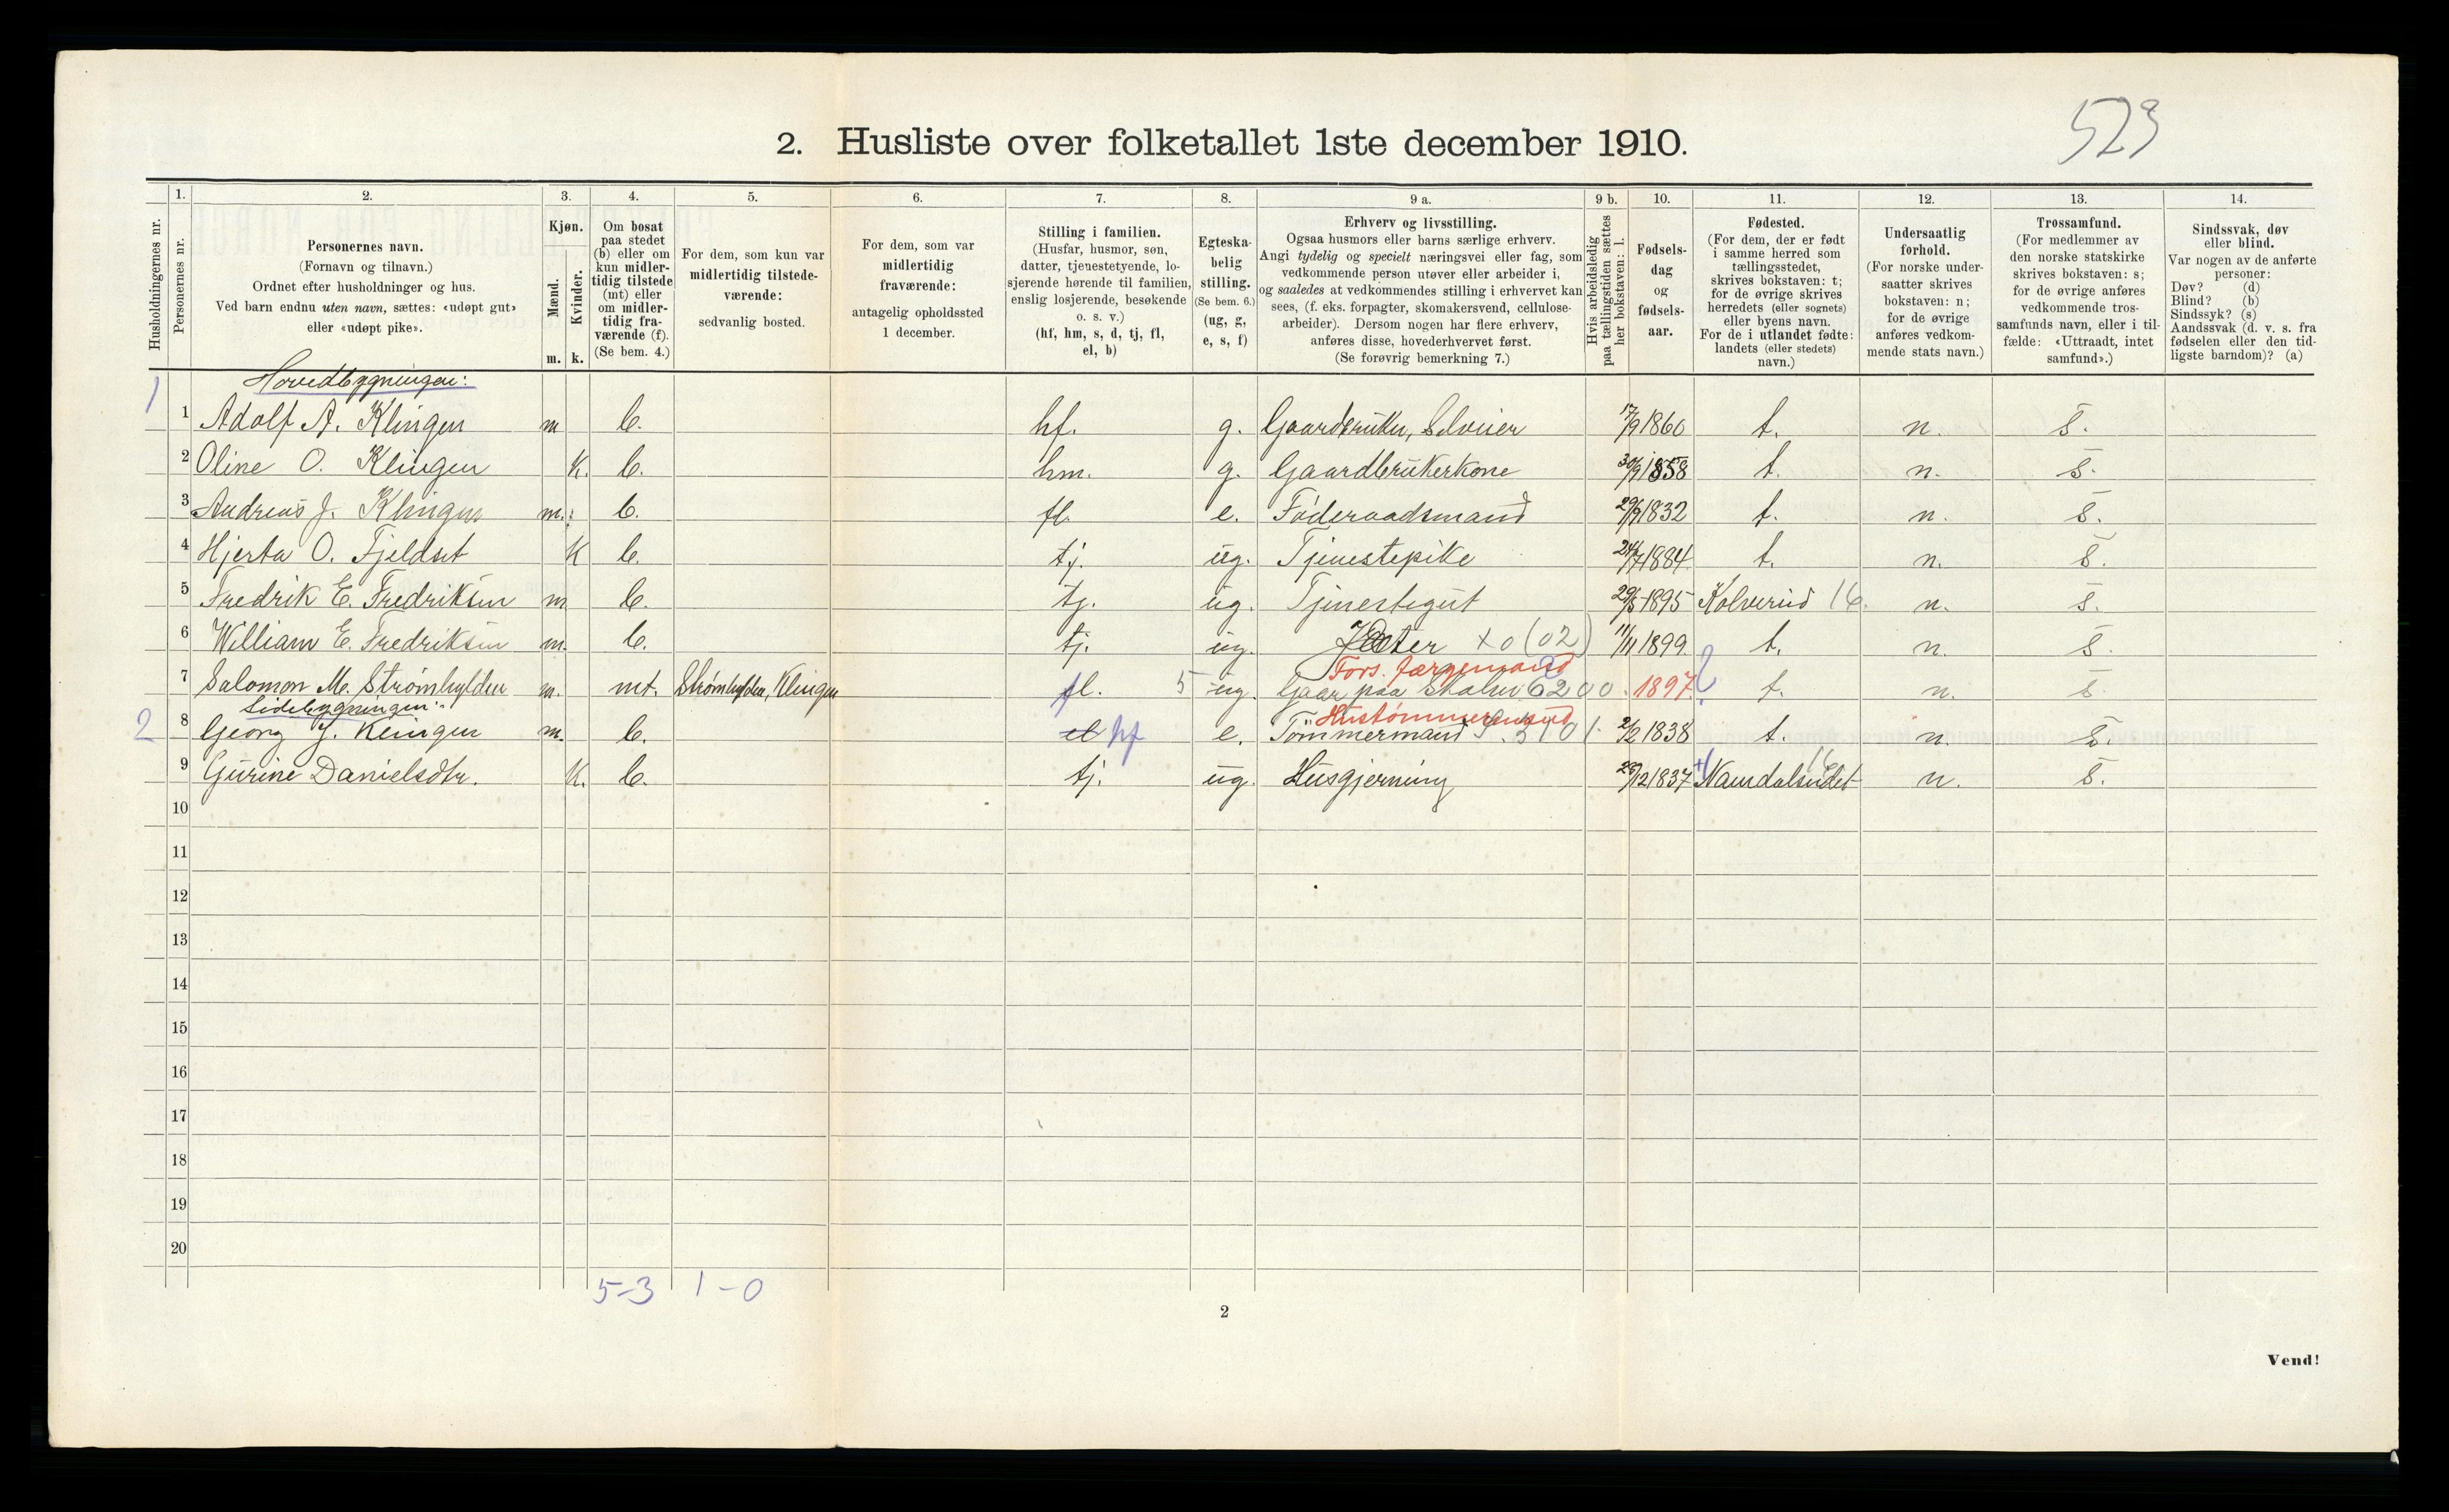 523
2. Husliste over folketallet 1ste december 1910.
Husholdningernes nr.
1.
Personernes nr.
2.
Personernes navn.
(Fornavn og tilnavn.)
Ordnet efter husholdninger og hus.
Ved barn endnu uten navn, sættes: «udøpt gut»
eller «udøpt pike».
3.
Kjøn.
Mænd.
Kvinder.
m. k.
4.
Om bosat
paa stedet
(b) eller om
kun midler-
tidig tilstede
(mt) eller
om midler-
tidig fra-
værende (f).
(Se bem. 4.)
5.
For dem, som kun var
midlertidig tilstede-
værende:
sedvanlig bosted.
6.
For dem, som var
midlertidig
fraværende:
antagelig opholdssted
1 december.
7.
Stilling i familien.
(Husfar, husmor, søn,
datter, tjenestetyende, lo-
sjerende hørende til familien,
enslig losjerende, besøkende
o. s. v.)
(hf, hm, s, d, tj, fl,
el, b)
8.
Egteska-
belig
stilling.
(Se bem. 6.)
(ug, g,
e, s, f)
9 a.
Erhverv og livsstilling.
Ogsaa husmors eller barns særlige erhverv.
Angi tydelig og specielt næringsvei eller fag, som
vedkommende person utøver eller arbeider i,
og saaledes at vedkommendes stilling i erhvervet kan
sees, (f. eks. forpagter, skomakersvend, cellulose-
arbeider). Dersom nogen har flere erhverv,
anføres disse, hovederhvervet først.
(Se forøvrig bemerkning 7.)
9 b.
Hvis arbeidsledig
paa tællingstiden sættes
her bokstaven: l.
10.
Fødsels-
dag
og
fødsels-
aar.
11.
Fødested.
(For dem, der er født
i samme herred som
tællingsstedet,
skrives bokstaven: t;
for de øvrige skrives
herredets (eller sognets)
eller byens navn.
For de i utlandet fødte:
landets (eller stedets)
navn.)
12.
Undersaatlig
forhold.
(For norske under-
saatter skrives
bokstaven: n;
for de øvrige
anføres vedkom-
mende stats navn.)
13.
Trossamfund.
(For medlemmer av
den norske statskirke
skrives bokstaven: s;
for de øvrige anføres
vedkommende tros-
samfunds navn, eller i til-
fælde: «Uttraadt, intet
samfund».)
14.
Sindssvak, døv
eller blind.
Var nogen av de anførte
personer:
Døv? (d)
Blind? (b)
Sindssyk? (s)
Aandssvak (d. v. s. fra
fødselen eller den tid-
ligste barndom)? (a)
Hovedbygningen:
1 1 Adolf A. Klingen m b. hf. g. Gaardbruker, Selveier 17/9 1860 t. n. s.
2 Oline O. Klingen k. b. hm. g. Gaardbrukerkone 30/9 1858 t. n. s.
3 Andreas J. Klingen m. b. fl. e. Föderaadsmand 29/9 1832 t. n. s.
4 Hjerta O. Fjeldset k b. tj. ug. Tjenestepike 24/7 1884 t. n. s.
5 Fredrik E. Fredriksen m b. tj. ug. Tjenestegut 29/5 1895 Kolvereid 16. n. s.
6 William E. Fredriksen m. b. tj. ug. xo (02) 11/11 1899 t. n. s.
Fors. førgemand
7 Salomon M. Strømhylden m. mt. Strømhylden, Klingen fl. 5 ug. Gaar paa Skolen 6200. 1897 ? t. n. s
Sidebygningen:
Hustömmermand
2 8 Georg J. Klingen m. b. el hf e. Tömmermand 5101. 2/2 1838 t. n. s.
9 Gurine Danielsdtr. k. b. tj. ug. Husgjerning 29/12 1837 Namdalseidet 16 n. s.
10
11
12
13
14
15
16
17
18
19
20
5-3 1-0
2
Vend!